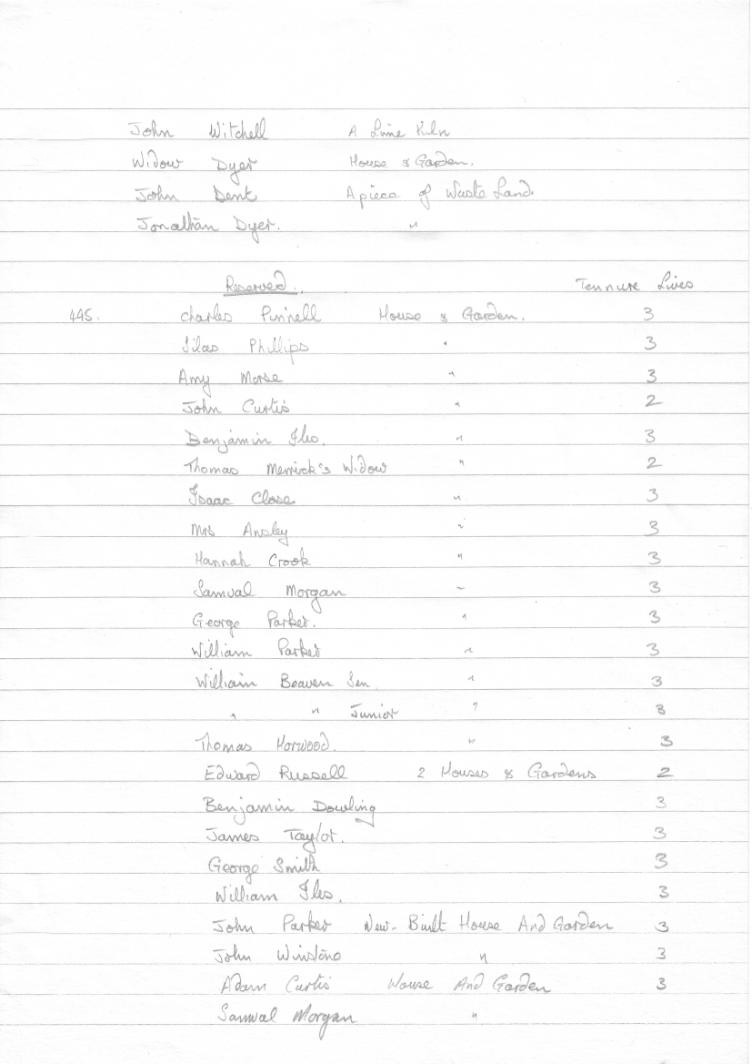 John Witchell A Lime Kiln
Widow Dyer House & Garden.
John Dent A piece of Waste Land.
Jonathan Dyer. "
Reserved. Tennure Lives
445. Charles Pinnell House & Garden. 3
Silas Phillips " 3
Amy Morse " 3
John Curtis " 2
Benjamin Iles. " 3
Thomas Merrick's Widow " 2
Isaac Close " 3
Mrs Ansley " 3
Hannah Crook " 3
Samual Morgan " 3
George Parker. " 3
William Parker " 3
William Beaven Sen. " 3
" " Junior " 3
Thomas Horwood. " 3
Edward Russell 2 Houses & Gardens 2
Benjamin Dowling 3
James Taylor. 3
George Smith 3
William Iles. 3
John Parker New-Built House And Garden 3
John Winstone " 3
Adam Curtis House And Garden 3
Samual Morgan "